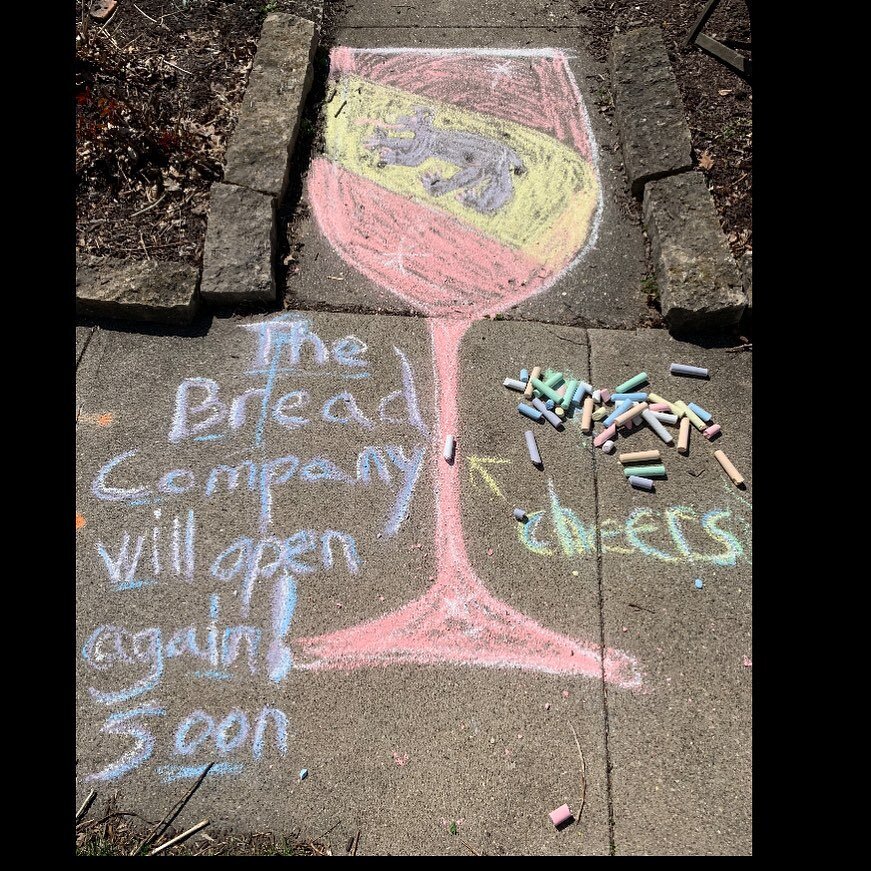 The
Bread
Company
will open
again!
Soon
cheers